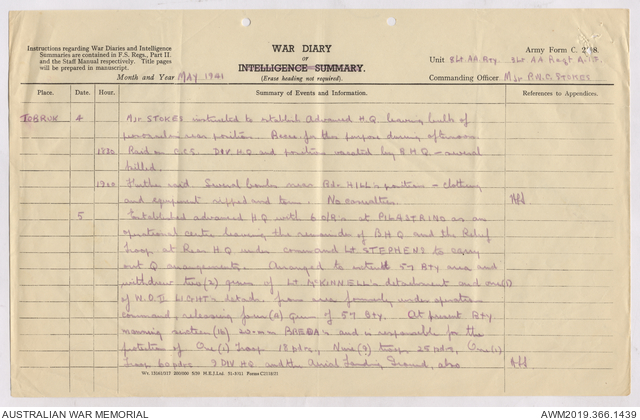 Instructions regarding War Diaries and Intelligence
Summaries are contained in F.S. Regs., Part II.
and the Staff Manual respectively. Title pages
will be prepared in manuscript.
WAR DIARY
OR
INTELLIGENCE SUMMARY.
(Erase heading not required).
Army Form C. 2118.
Unit 8 Lt. AA. Bty. 3 Lt AA Regt A.I.F.
Month and Year MAY. 1941
Commanding Officer Mjr P.W.C. STOKES
Place. Date. Hour. Summary of Events and Information. References to Appendices.
TOBRUK 4 Mjr. STOKES instructed to establish Advanced H.Q leaving bulk of
personnel near position. Recce for this purpose during afternoon.
Raid on C.C.S. DIV H.Q and position vacated by B H Q - several
killed.
Further raid. Several bombs near Bdr HILL's position - clothing
and equipment ripped and torn. No casualties.
5 Established advanced H.Q with 6 O/R's at PILASTRINO as an
operational centre leaving the remainder of B.H.Q and the Relief
Troop at Rear H.Q under command Lt. STEPHENS to carry
out Q arrangements. Arranged to 57 Bty area and
withdraw two (2) guns of Lt McKINNELL's detachment and one (1)
of W.O. II LIGHT's detach. from area formerly under operation
command, releasing four (4) guns of 57 Bty. At present Bty
manning sixteen (16) 20-mm BREDA's and is responsible for the
protection of One (1) Troop 18 pdrs, Nine (9) troops 25 pdrs, One (1)
Troop 60 pdrs 9 DIV H.Q and the Aerial Landing Ground, also
Wt. 13361/1217 2000000 5/39 M.R.J. Ltd. 51-8311 Forms C2118/21
AUSTRALIAN WAR MEMORIAL
AWM2019.366.1439